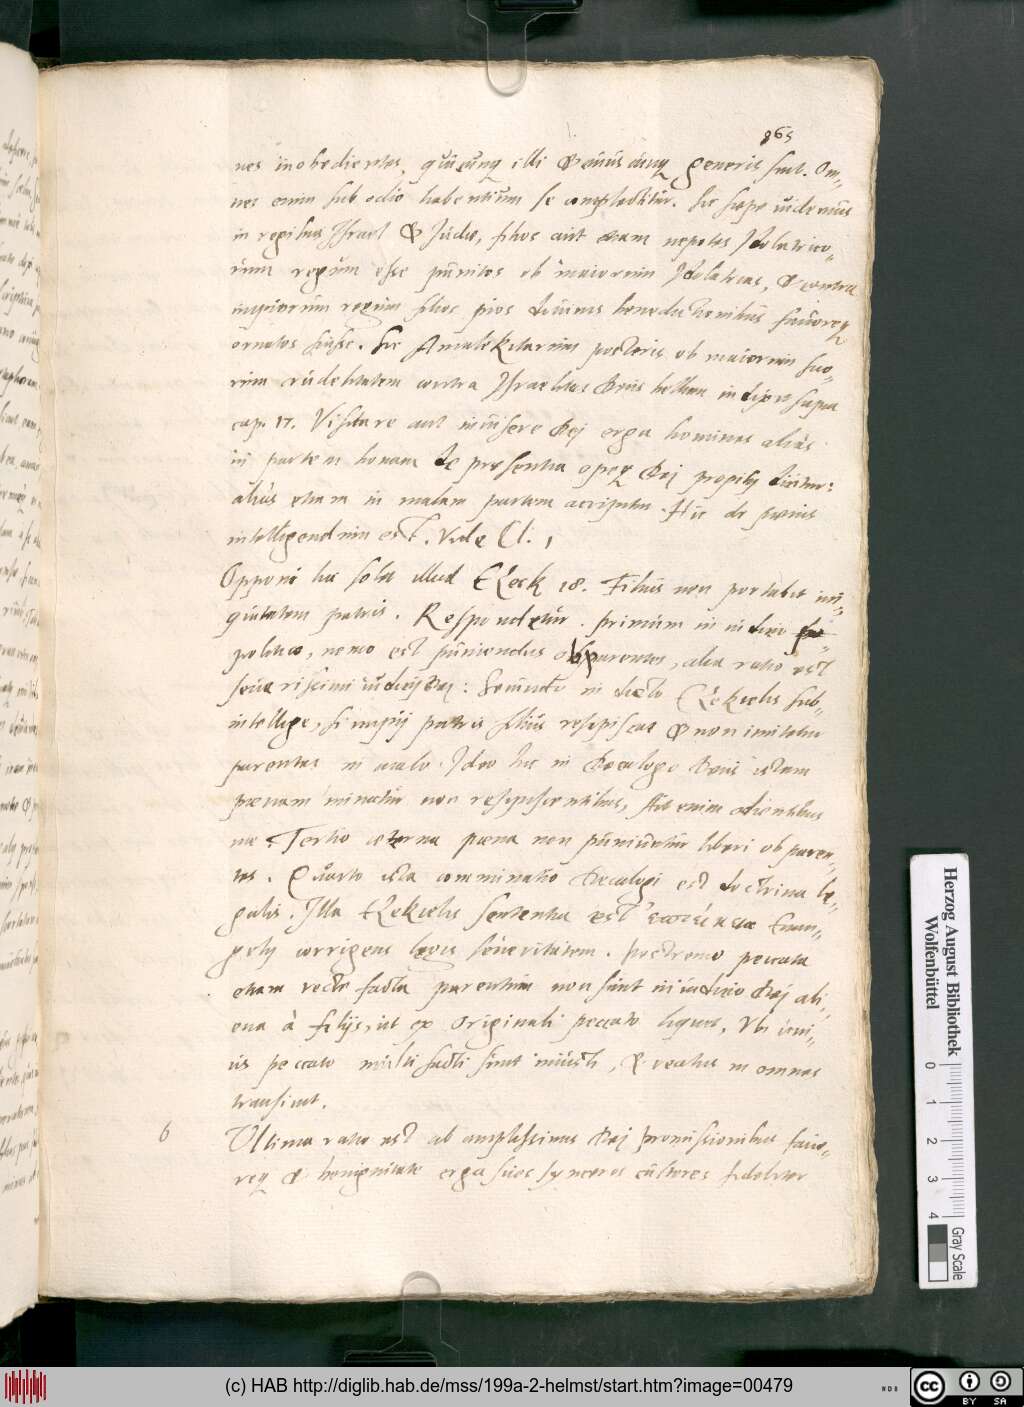 865
nes inobedientes, quicunq illi & cuiuscunq generis sint. Om-
nes enim sub odio habentium se complectitur. Sic sæpe uidemus
in regibus Israel & Juda, filios aut etiam nepotes Idolatrico-
rum regum esse punitos ob maiorum Idolatrias, & contra
impiorum regum filios pios diuinis benedictionibus fauoreq
ornatos fuisse. Sic Amalekitarum posteris ob maiorum suo-
rum crudelitatem contra Israelitas Deus bellum indixit supra
cap. 17. Visitare aut inuisere Dej erga homines aliàs
in partem bonam de præsentia opeq Dej propitij dicitur:
aliàs etiam in malam partem accipitur. Hic de pœnis
intelligendum est. Vide Cl. 1
Opponi hic solet illud Ezeck 18. Filius non portabit ini-
quitatem patris. Respondetur. primum in iudicio
politico, nemo est puniendus ob parentes, alia ratio est
seuerissimi iudicij Dej: Secundo in dicto Ezekielis sub-
intellige, si impij patris filius resipiscat & non imitetur
parentes in malo. Ideo hic in Decalogo Deus etiam
pœnam minatur non resipiscentibus, Ait enim odientibus
me. Tertio æterna pœna non puniuntur liberi ob paren-
tes. Quarto ista comminatio Decalogi est doctrina le-
galis. Illa Ezekielis sententia est ἐπιείκεια Euan-
gelij corrigens legis seueritatem. postremo peccata
etiam recte facta parentum non sunt in iudicio Dej ali-
ena à filijs, ut ex originali peccato liquet, Vbi uni-
us peccato multi facti sunt iniusti, & reatus in omnes
transiuit.
6 Vltima ratio est ab amplissimis Dej promissionibus fauo-
req & benignitate erga suos synceros cultores fideliter
Herzog August Bibliothek
Wolfenbüttel
0 1 2 3 4
Gray Scale
(c) HAB http://diglib.hab.de/mss/199a-2-helmst/start.htm?image=00479
cc BY SA